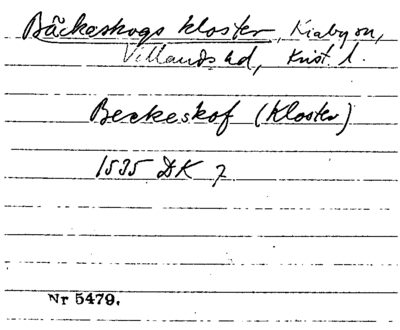 Bäckeskogs kloster, Kiaby sn,
Villands hd, Krist. l.
Beckeskof (Kloster)
1535 DK 7
Nr 5479.